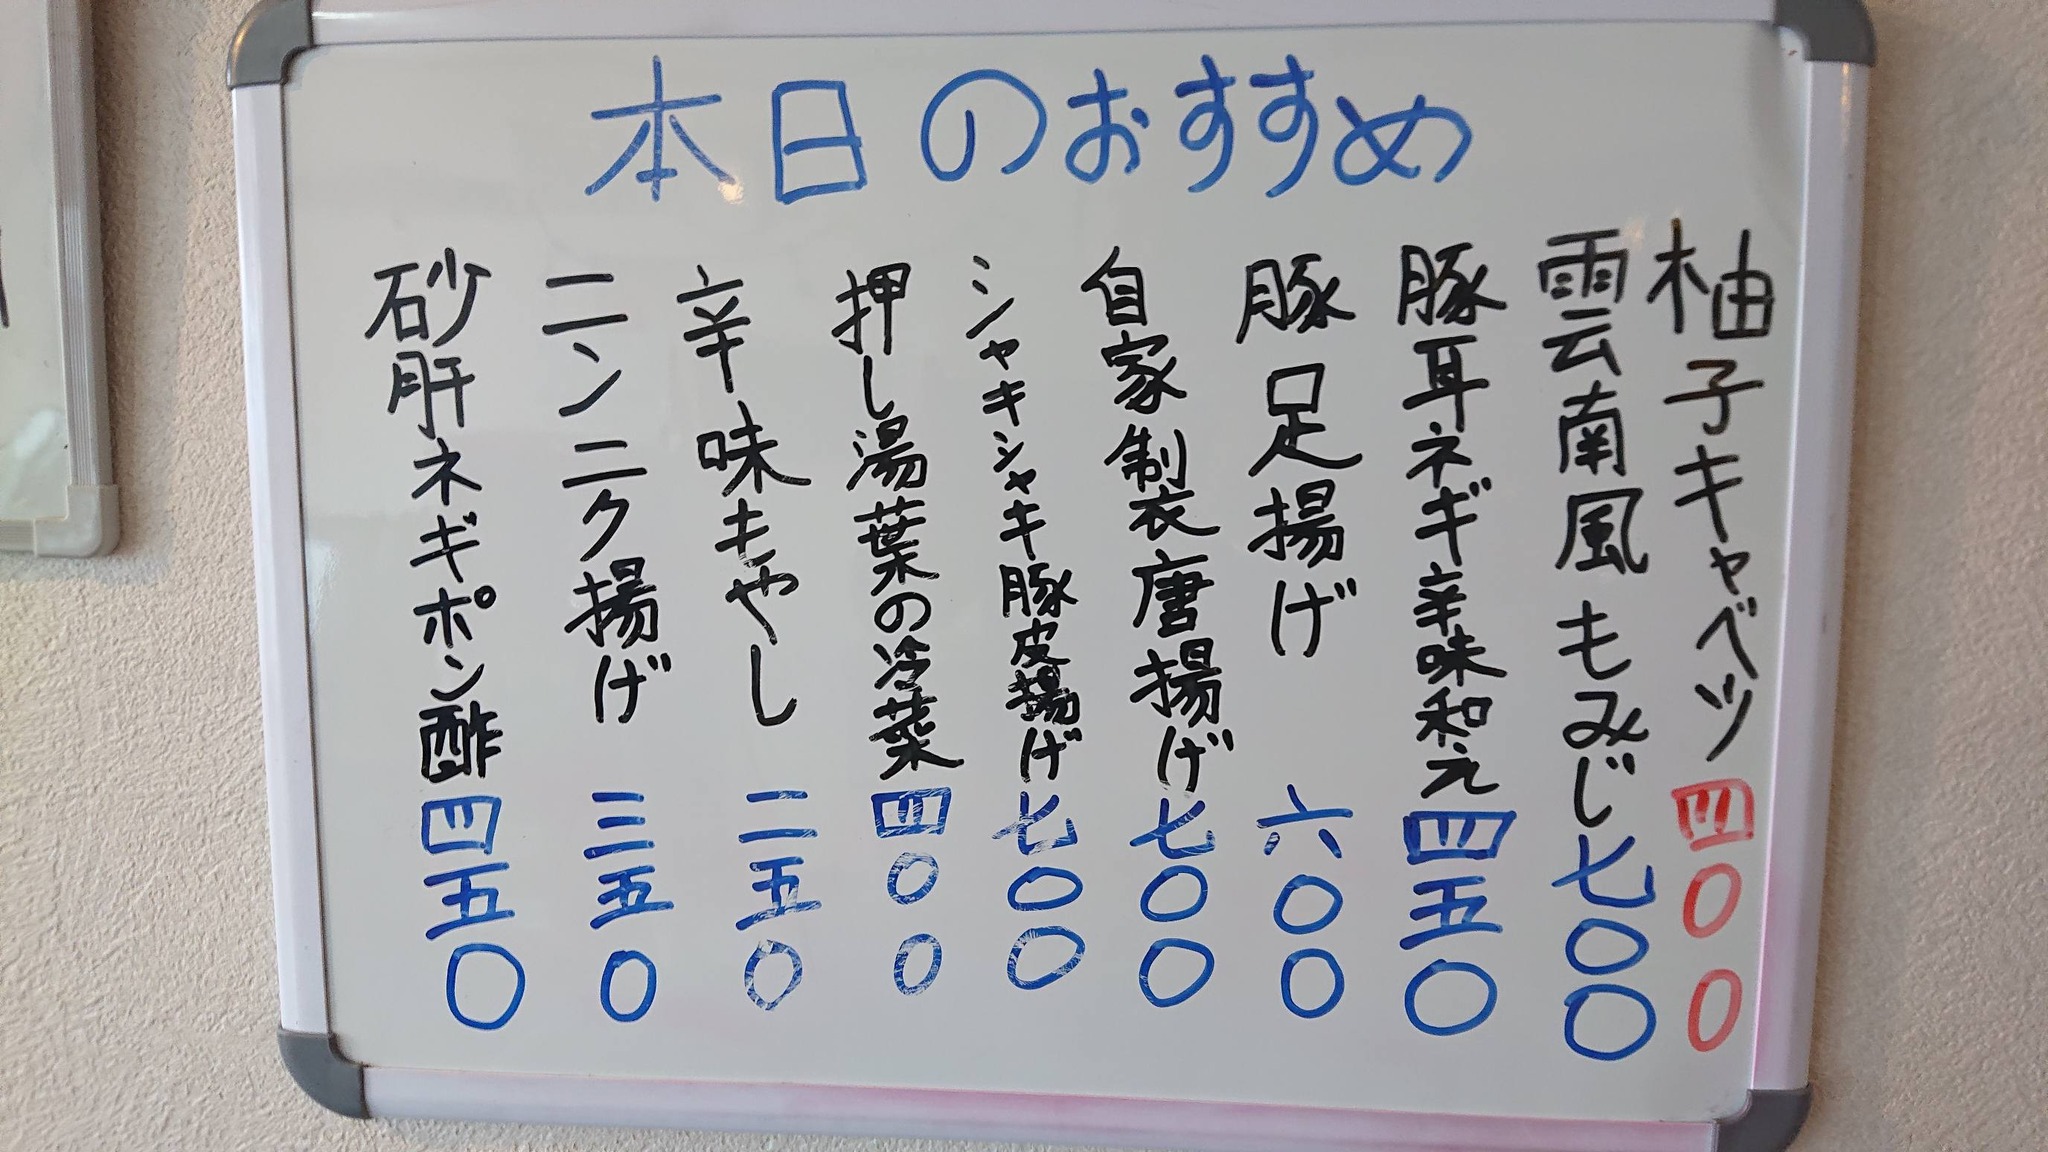 本日のおすすめ
柚子キャベツ 四〇〇
雲南風もみじ 七〇〇
豚耳ネギ辛味和え 四五〇
豚足揚げ 六〇〇
自家製唐揚げ 七〇〇
シャキシャキ豚皮揚げ 七〇〇
押し湯葉の冷菜 四〇〇
辛味もやし 二五〇
ニンニク揚げ 三五〇
砂肝ネギポン酢 四五〇